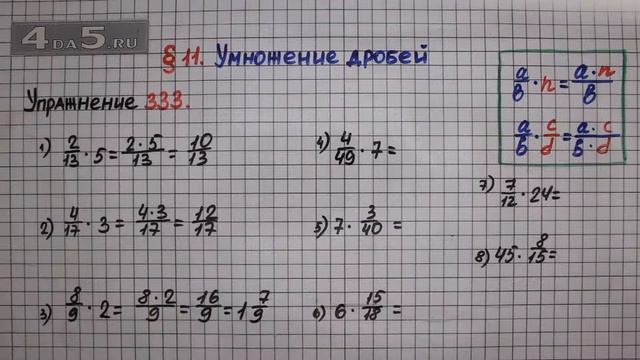 4DA5.RU
§ 11. Умножение дробей
Упражнение 333.
a/b · n = a·n/b
a/b · c/d = a·c/b·d
1) 2/13 · 5 = 2·5/13 = 10/13
2) 4/17 · 3 = 4·3/17 = 12/17
3) 8/9 · 2 = 8·2/9 = 16/9 = 1 7/9
4) 4/49 · 7 =
5) 7 · 3/40 =
6) 6 · 15/18 =
7) 7/12 · 24 =
8) 45 · 8/15 =